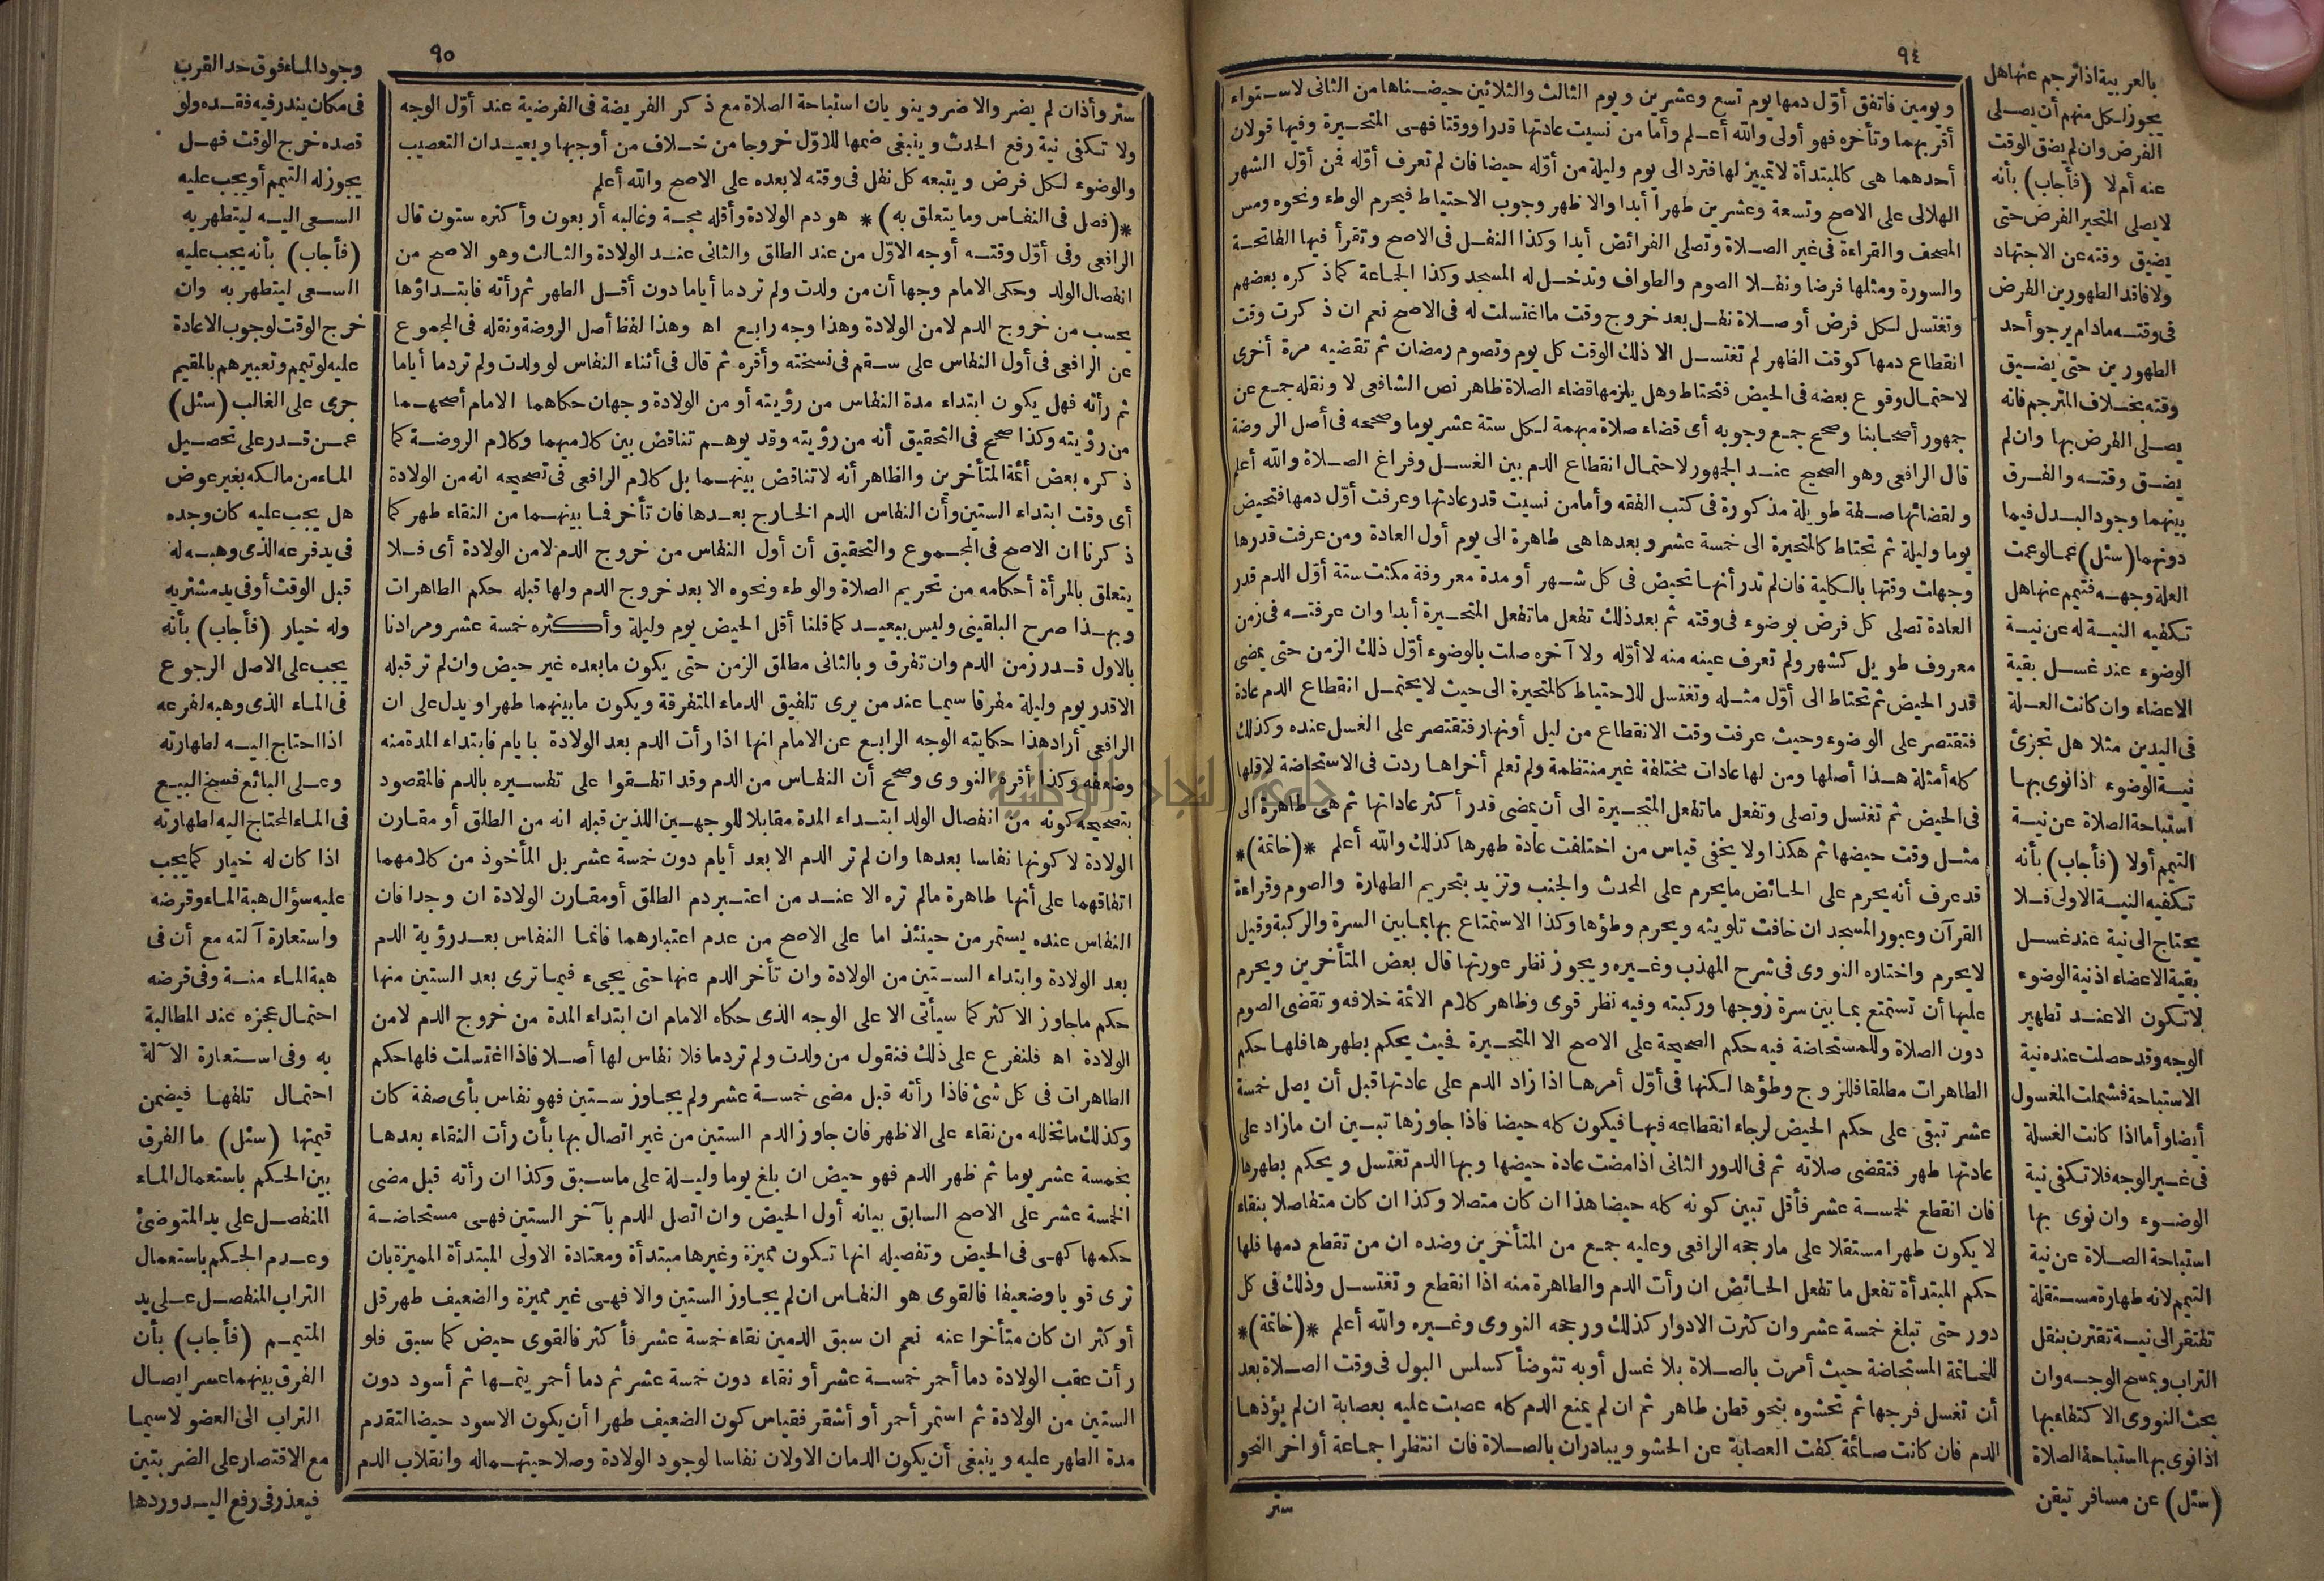 ٩٤
ويومين فاتفق أول دمها يوم تسع وعشرين ويوم الثالث والثلاثين حيضناها من الثانى لاستواء
أقربهما وتأخره فهو أولى والله أعلم وأما من نسيت عادتها قدرا ووقتا فهى المتحيرة وفيها قولان
أحدهما هى كالمبتدأة لا تمييز لها فترد الى يوم وليلة من أوله حيضا فان لم تعرف أوله فمن أول الشهر
الهلالى على الاصح وتسعة وعشرين طهرا أبدا والاظهر وجوب الاحتياط فيحرم الوطء ونحوه ومس
المصحف والقراءة فى غير الصلاة وتصلى الفرائض أبدا وكذا النفل فى الاصح وتقرأ فيها الفاتحة
والسورة ومثلها فرضا ونفلا الصوم والطواف وتدخل له المسجد وكذا الجماعة كما ذكره بعضهم
وتغتسل لكل فرض أو صلاة نفل بعد خروج وقت ما اغتسلت له فى الاصح نعم ان ذكرت وقت
انقطاع دمها كوقت الظهر لم تغتسل الا ذلك الوقت كل يوم وتصوم رمضان ثم تقضيه مرة أخرى
لاحتمال وقوع بعضه فى الحيض فتحتاط وهل يلزمها قضاء الصلاة ظاهر نص الشافعى لا ونقله جمع عن
جمهور أصحابنا وصحح جمع وجوبه أى قضاء صلاة مبهمة لكل ستة عشر يوما وصححه فى أصل الروضة
قال الرافعى وهو الصحيح عند الجمهور لاحتمال انقطاع الدم بين الغسل وفراغ الصلاة والله أعلم
ولقضائها صفة طويلة مذكورة فى كتب الفقه وأما من نسيت قدر عادتها وعرفت أول دمها فتحيض
يوما وليلة ثم تحتاط كالمتحيرة الى خمسة عشر وبعدها هى طاهرة الى يوم أول العادة ومن عرفت قدرها
وجهلت وقتها بالكلية فان لم تدر أنها تحيض فى كل شهر أو مدة معروفة مكثت ستة أول الدم قدر
العادة تصلى كل فرض بوضوء فى وقته ثم بعد ذلك تفعل ما تفعل المتحيرة أبدا وان عرفته فى زمن
معروف طويل كشهر ولم تعرف عينه منه لا أوله ولا آخره صلت بالوضوء أول ذلك الزمن حتى يمضى
قدر الحيض ثم تحتاط الى أول مثله وتغتسل للاحتياط كالمتحيرة الى حيث لا يحتمل انقطاع الدم عادة
فتقتصر على الوضوء وحيث عرفت وقت الانقطاع من ليل أو نهار فتقتصر على الغسل عنده وكذلك
كله أمثلة هذا أصلها ومن لها عادات مختلفة غير منتظمة ولم تعلم أخراها ردت فى الاستحاضة لاقلها
فى الحيض ثم تغتسل وتصلى وتفعل ما تفعل المتحيرة الى أن يمضى قدر أكثر عاداتها ثم هى طاهرة الى
مثل وقت حيضها ثم هكذا ولا يخفى قياس من اختلفت عادة طهرها كذلك والله أعلم *(خاتمة)*
قد عرف أنه يحرم على الحائض ما يحرم على المحدث والجنب وتزيد بتحريم الطهارة والصوم وقراءة
القرآن وعبور المسجد ان خافت تلويثه ويحرم وطؤها وكذا الاستمتاع بها بما بين السرة والركبة وقيل
لا يحرم واختاره النووى فى شرح المهذب وغيره ويجوز نظر عورتها قال بعض المتأخرين ويحرم
عليها أن تستمتع بما بين سرة زوجها وركبته وفيه نظر قوى وظاهر كلام الائمة خلافه وتقضى الصوم
دون الصلاة وللمستحاضة فيه حكم الصحيحة على الاصح الا المتحيرة فحيث يحكم بطهرها فلها حكم
الطاهرات مطلقا فللزوج وطؤها لكنها فى أول أمرها اذا زاد الدم على عادتها قبل أن يصل خمسة
عشر تبقى على حكم الحيض لرجاء انقطاعه فيها فيكون كله حيضا فاذا جاوزها تبين ان مازاد على
عادتها طهر فتقضى صلاته ثم فى الدور الثانى اذا مضت عادة حيضها وبها الدم تغتسل ويحكم بطهرها
فان انقطع لخمسة عشر فأقل تبين كونه كله حيضا هذا ان كان متصلا وكذا ان كان متفاصلا بنقاء
لا يكون طهرا مستقلا على ما رجحه الرافعى وعليه جمع من المتأخرين وضده ان من تقطع دمها فلها
حكم المبتدأة تفعل ما تفعل الحائض ان رأت الدم والطاهرة منه اذا انقطع وتغتسل وذلك فى كل
دور حتى تبلغ خمسة عشر وان كثرت الادوار كذلك ورجحه النووى وغيره والله أعلم *(خاتمة)*
للخاتمة المستحاضة حيث أمرت بالصلاة بلا غسل أو به تتوضأ كسلس البول فى وقت الصلاة بعد
أن تغسل فرجها ثم تحشوه بنحو قطن طاهر ثم ان لم يمنع الدم كله عصبت عليه بعصابة ان لم يؤذها
الدم فان كانت صائمة كفت العصابة عن الحشو ويبادران بالصلاة فان انتظرا جماعة أو اخر النحو
ستر
بالعربية اذا ترجم عنها هل
يجوز لكل منهم أن يصلى
الفرض وان لم يضق الوقت
عنه أم لا (فأجاب) بأنه
لا يصلى المتحير الفرض حتى
يضيق وقته عن الاجتهاد
ولا فاقد الطهورين الفرض
فى وقته مادام يرجو أحد
الطهورين حتى يضيق
وقته بخلاف المترجم فانه
يصلى الفرض بها وان لم
يضق وقته والفرق
بينهما وجود البدل فيما
دونهما (سئل) عما لو عمت
العلة وجهه فتيمم عنها هل
تكفيه النية له عن نية
الوضوء عند غسل بقية
الاعضاء وان كانت العلة
فى اليدين مثلا هل تجزئ
نية الوضوء اذا نوى بها
استباحة الصلاة عن نية
التيمم أولا (فأجاب) بأنه
تكفيه النية الاولى فلا
يحتاج الى نية عند غسل
بقية الاعضاء اذ نية الوضوء
لا تكون الا عند تطهير
الوجه وقد حصلت عنده نية
الاستباحة فشملت المغسول
أيضا وأما اذا كانت الغسلة
فى غير الوجه فلا تكفى نية
الوضوء وان نوى بها
استباحة الصلاة عن نية
التيمم لانه طهارة مستقلة
تفتقر الى نية تقترن بنقل
التراب وبمسح الوجه وان
بحث النووى الاكتفاء بها
اذا نوى بها استباحة الصلاة
(سئل) عن مسافر تيقن
٩٥
ستر وأذان لم يضر والا ضر وينويان استباحة الصلاة مع ذكر الفريضة فى الفرضية عند أول الوجه
ولا تكفى نية رفع الحدث وينبغى ضمها للاول خروجا من خلاف من أوجبها ويعيدان التعصيب
والوضوء لكل فرض ويتبعه كل نفل فى وقته لا بعده على الاصح والله أعلم
*(فصل فى النفاس وما يتعلق به)* هو دم الولادة وأقله مجة وغالبه أربعون وأكثره ستون قال
الرافعى وفى أول وقته أوجه الاول من عند الطلق والثانى عند الولادة والثالث وهو الاصح من
انفصال الولد وحكى الامام وجها أن من ولدت ولم تر دما أياما دون أقل الطهر ثم رأته فابتداؤها
يحسب من خروج الدم لا من الولادة وهذا وجه رابع اه وهذا لفظ أصل الروضة ونقله فى المجموع
عن الرافعى فى أول النفاس على سقم فى نسخته وأقره ثم قال فى أثناء النفاس لو ولدت ولم تر دما أياما
ثم رأته فهل يكون ابتداء مدة النفاس من رؤيته أو من الولادة وجهان حكاهما الامام أصحهما
من رؤيته وكذا صحح فى التحقيق أنه من رؤيته وقد يوهم تناقض بين كلاميهما وكلام الروضة كما
ذكره بعض أئمة المتأخرين والظاهر أنه لا تناقض بينهما بل كلام الرافعى فى تصحيحه انه من الولادة
أى وقت ابتداء الستين وأن النفاس الدم الخارج بعدها فان تأخر فما بينهما من النقاء طهر كما
ذكرنا ان الاصح فى المجموع والتحقيق أن أول النفاس من خروج الدم لا من الولادة أى فلا
يتعلق بالمرأة أحكامه من تحريم الصلاة والوطء ونحوه الا بعد خروج الدم ولها قبله حكم الطاهرات
وبهذا صرح البلقينى وليس ببعيد كما قلنا أقل الحيض يوم وليلة وأكثره خمسة عشر ومرادنا
بالاول قدر زمن الدم وان تفرق وبالثانى مطلق الزمن حتى يكون ما بعده غير حيض وان لم تر قبله
الا قدر يوم وليلة مفرقا سيما عند من يرى تلفيق الدماء المتفرقة ويكون ما بينهما طهرا ويدل على ان
الرافعى أراد هذا حكايته الوجه الرابع عن الامام انها اذا رأت الدم بعد الولادة بايام فابتداء المدة منه
وضعفه وكذا أقره النووى وصحح أن النفاس من الدم وقد اتفقوا على تفسيره بالدم فالمقصود
بتصحيحه كونه من انفصال الولد ابتداء المدة مقابلا للوجهين اللذين قبله انه من الطلق أو مقارن
الولادة لا كونها نفاسا بعدها وان لم تر الدم الا بعد أيام دون خمسة عشر بل المأخوذ من كلامهما
اتفاقهما على أنها طاهرة مالم تره الا عند من اعتبر دم الطلق أو مقارن الولادة ان وجدا فان
النفاس عنده يستمر من حينئذ اما على الاصح من عدم اعتبارهما فانما النفاس بعد رؤية الدم
بعد الولادة وابتداء الستين من الولادة وان تأخر الدم عنها حتى يجىء فيما ترى بعد الستين منها
حكم ماجاوز الاكثر كما سيأتى الا على الوجه الذى حكاه الامام ان ابتداء المدة من خروج الدم لا من
الولادة اه فلنفرع على ذلك فنقول من ولدت ولم تر دما فلا نفاس لها أصلا فاذا اغتسلت فلها حكم
الطاهرات فى كل شئ فاذا رأته قبل مضى خمسة عشر ولم يجاوز ستين فهو نفاس بأى صفة كان
وكذلك ما تخلله من نقاء على الاظهر فان جاوز الدم الستين من غير اتصال بها بأن رأت النقاء بعدها
بخمسة عشر يوما ثم ظهر الدم فهو حيض ان بلغ يوما وليلة على ما سبق وكذا ان رأته قبل مضى
الخمسة عشر على الاصح السابق بيانه أول الحيض وان اتصل الدم بآخر الستين فهى مستحاضة
حكمها كهى فى الحيض وتفصيله انها تكون مميزة وغيرها مبتدأة ومعتادة الاولى المبتدأة المميزة بان
ترى قويا وضعيفا فالقوى هو النفاس ان لم يجاوز الستين والا فهى غير مميزة والضعيف طهر قل
أو كثر ان كان متأخرا عنه نعم ان سبق الدمين نقاء خمسة عشر فأكثر فالقوى حيض كما سبق فلو
رأت عقب الولادة دما أحمر خمسة عشر أو نقاء دون خمسة عشر ثم دما أحمر يتمها ثم أسود دون
الستين من الولادة ثم استمر أحمر أو أشقر فقياس كون الضعيف طهرا أن يكون الاسود حيضا لتقدم
مدة الطهر عليه وينبغى أن يكون الدمان الاولان نفاسا لوجود الولادة وصلاحيتهما له وانقلاب الدم
وجود الماء فوق حد القرب
فى مكان يندر فيه فقده ولو
قصده خرج الوقت فهل
يجوز له التيمم أو يجب عليه
السعى اليه ليتطهر به
(فأجاب) بأنه يجب عليه
السعى ليتطهر به وان
خرج الوقت لوجوب الاعادة
عليه لو تيمم وتعبيرهم بالمقيم
جرى على الغالب (سئل)
عمن قدر على تحصيل
الماء من مالكه بغير عوض
هل يجب عليه كان وجده
فى يد فرعه الذى وهبه له
قبل الوقت أو فى يد مشتريه
وله خيار (فأجاب) بأنه
يجب على الاصل الرجوع
فى الماء الذى وهبه لفرعه
اذا احتاج اليه لطهارته
وعلى البائع فسخ البيع
فى الماء المحتاج اليه لطهارته
اذا كان له خيار كما يجب
عليه سؤال هبة الماء وقرضه
واستعارة آلته مع أن فى
هبة الماء منة وفى قرضه
احتمال عجزه عند المطالبة
به وفى استعارة الآلة
احتمال تلفها فيضمن
قيمتها (سئل) ما الفرق
بين الحكم باستعمال الماء
المنفصل على يد المتوضئ
وعدم الحكم باستعمال
التراب المنفصل على يد
المتيمم (فأجاب) بأن
الفرق بينهما عسر ايصال
التراب الى العضو لا سيما
مع الاقتصار على الضربتين
فيعذر فى رفع اليد وردها
جامعة النجاح الوطنية